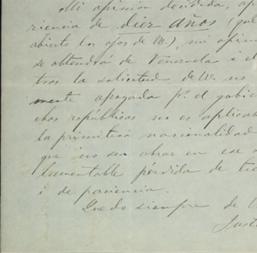 mi opinion decidida, ap
riencia de diez años (que
abierto los ojos de W.), mi opin
se atendrá de Venezuela i el
tras la solicitud de W. no
mente apoyada pr. el gobie
chas repúblicas no es aplica
la primitiva nacionalidad
que no sea obrar en ese
lamentable pérdida de tie
i de paciencia.
Quedo siempre de